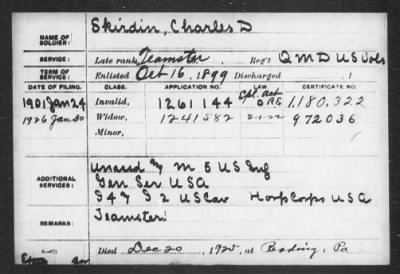 NAME OF SOLDIER: Skirdin, Charles D
SERVICE: Late rank, Teamster Reg't Q M D U S Vols
TERM OF SERVICE: Enlisted Oct 16, 1899 Discharged , 1
DATE OF FILING. CLASS. APPLICATION NO. LAW. CERTIFICATE NO.
1901 Jan 24 Invalid, 1261144 Gen Act O R S 1,180,322
1926 Jan 20 Widow, 1241582 972036
Minor,
ADDITIONAL SERVICES: Unassd M 5 U S Inf
Gen Ser U S A
S 2 U S Cav Hosp Corps U S A
REMARKS: Teamster
Died Dec 20, 1925, at Reading, Pa